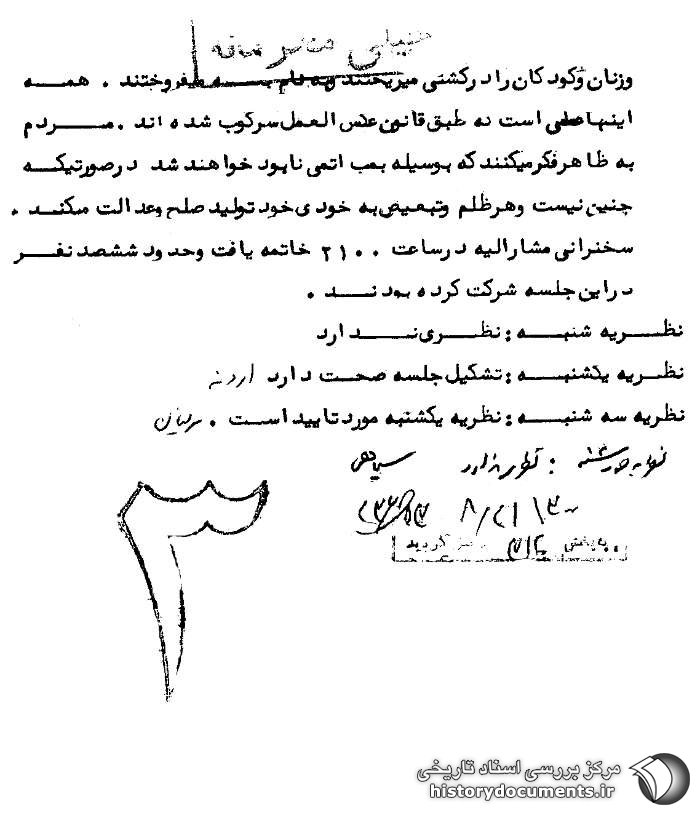 خیلی محرمانه
وزنان وکودکان را در کشتی میریختند و به نام برده میفروختند . همه
اینها عملی است که طبق قانون عکس العمل سرکوب شده اند . مردم
به ظاهر فکر میکنند که بوسیله بمب اتمی نابود خواهند شد در صورتیکه
چنین نیست و هر ظلم و تبعیض به خودی خود تولید صلح و عدالت میکند .
سخنرانی مشارالیه در ساعت ۲۱۰۰ خاتمه یافت وحدود ششصد نفر
در این جلسه شرکت کرده بودند .
نظریه شنبه : نظری ندارد
نظریه یکشنبه : تشکیل جلسه صحت دارد
نظریه سه شنبه : نظریه یکشنبه مورد تایید است .
نظریه چهارشنبه : نظری ندارد
به بخش ۳۱۲ گردید
۳
مرکز بررسی اسناد تاریخی
historydocuments.ir